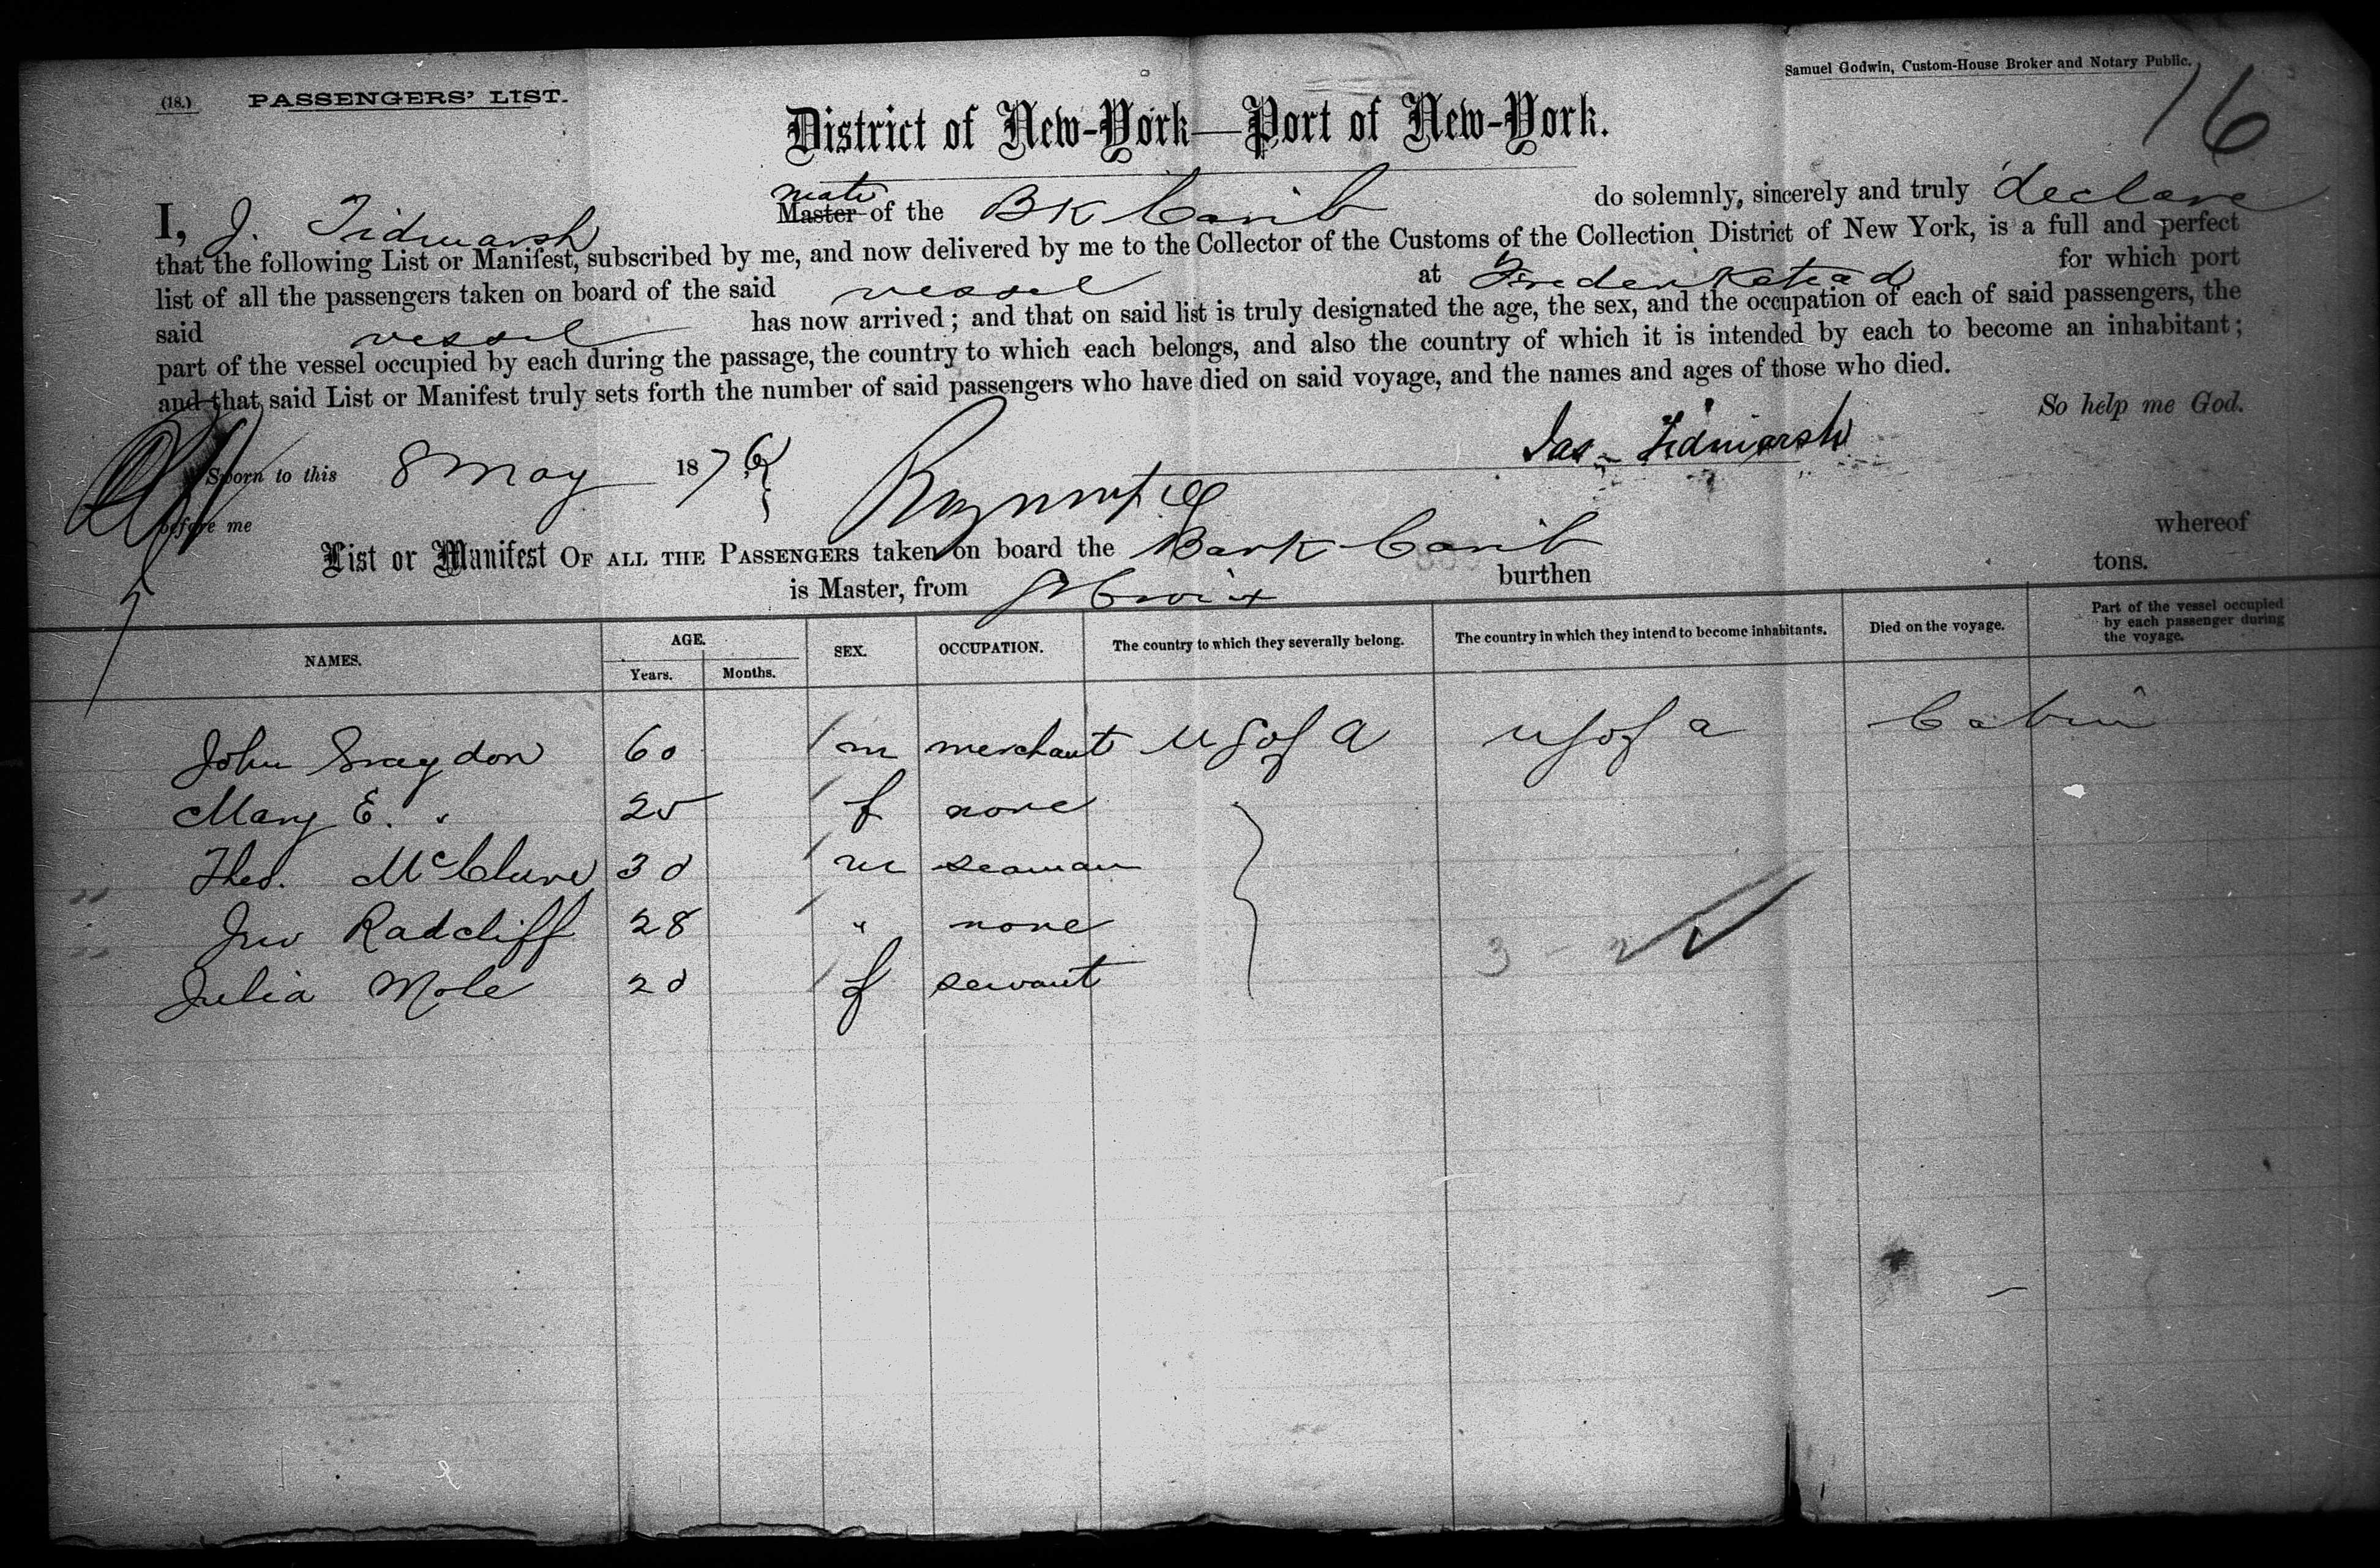 Samuel Godwin, Custom-House Broker and Notary Public.
(18.) PASSENGERS' LIST.
16
District of New-York—Port of New-York.
I, J. Tidmarsh mate Master of the BK Carib do solemnly, sincerely and truly declare
that the following List or Manifest, subscribed by me, and now delivered by me to the Collector of the Customs of the Collection District of New York, is a full and perfect
list of all the passengers taken on board of the said vessel at Frederikstead for which port
said vessel has now arrived; and that on said list is truly designated the age, the sex, and the occupation of each of said passengers, the
part of the vessel occupied by each during the passage, the country to which each belongs, and also the country of which it is intended by each to become an inhabitant;
and that said List or Manifest truly sets forth the number of said passengers who have died on said voyage, and the names and ages of those who died.
So help me God.
Jas. Tidmarsh
Sworn to this 8 May 1876
before me
List or Manifest OF ALL THE PASSENGERS taken on board the Bark Carib whereof
is Master, from St Croix burthen tons.
NAMES. AGE. Years. Months. SEX. OCCUPATION. The country to which they severally belong. The country in which they intend to become inhabitants. Died on the voyage. Part of the vessel occupied by each passenger during the voyage.
John Graydon 60 m merchant U S of A U S of A Cabin
Mary E. " 25 f none
Theo. McClure 30 m seaman
Jno Radcliff 28 " none
3 - 2
Julia Mole 20 f servant